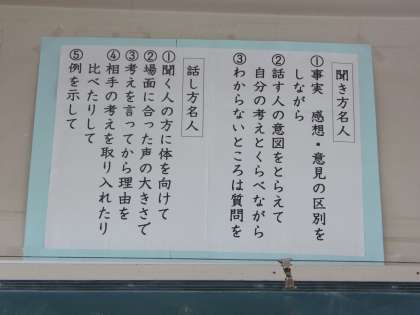 聞き方名人
①事実　感想・意見の区別を
しながら
②話す人の意図をとらえて
自分の考えとくらべながら
③わからないところは質問を
話し方名人
①聞く人の方に体を向けて
②場面に合った声の大きさで
③考えを言ってから理由を
④相手の考えを取り入れたり
比べたりして
⑤例を示して